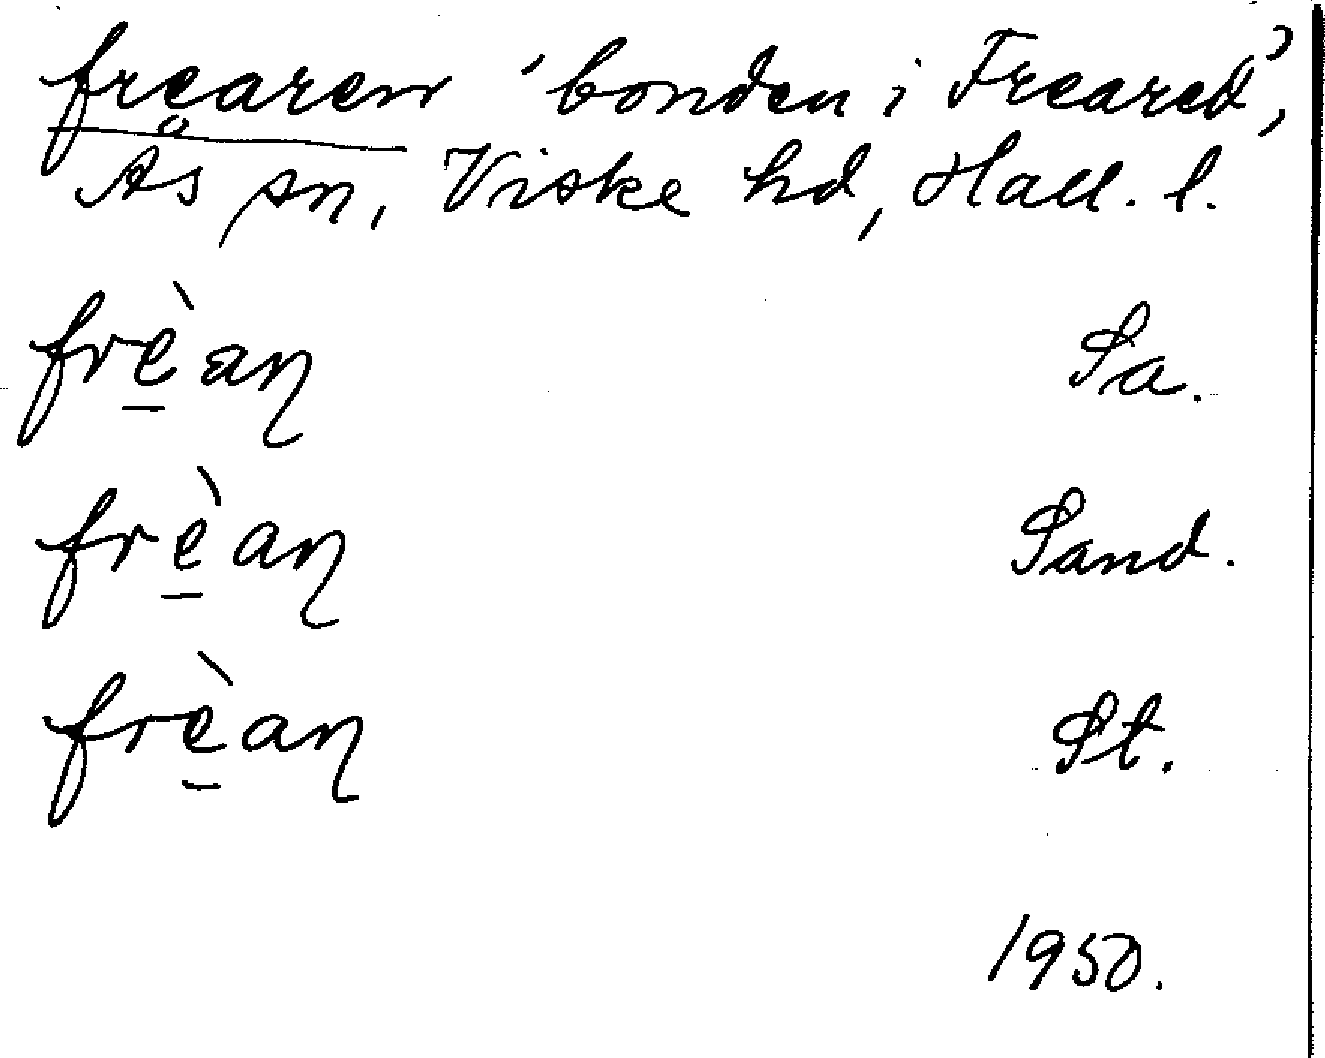 frearen 'bonden i Freared',
Ås sn, Viske hd, Hall. l.
frè̱aɳ Sa.
frè̱aɳ Sand.
frè̱aɳ St.
1950.